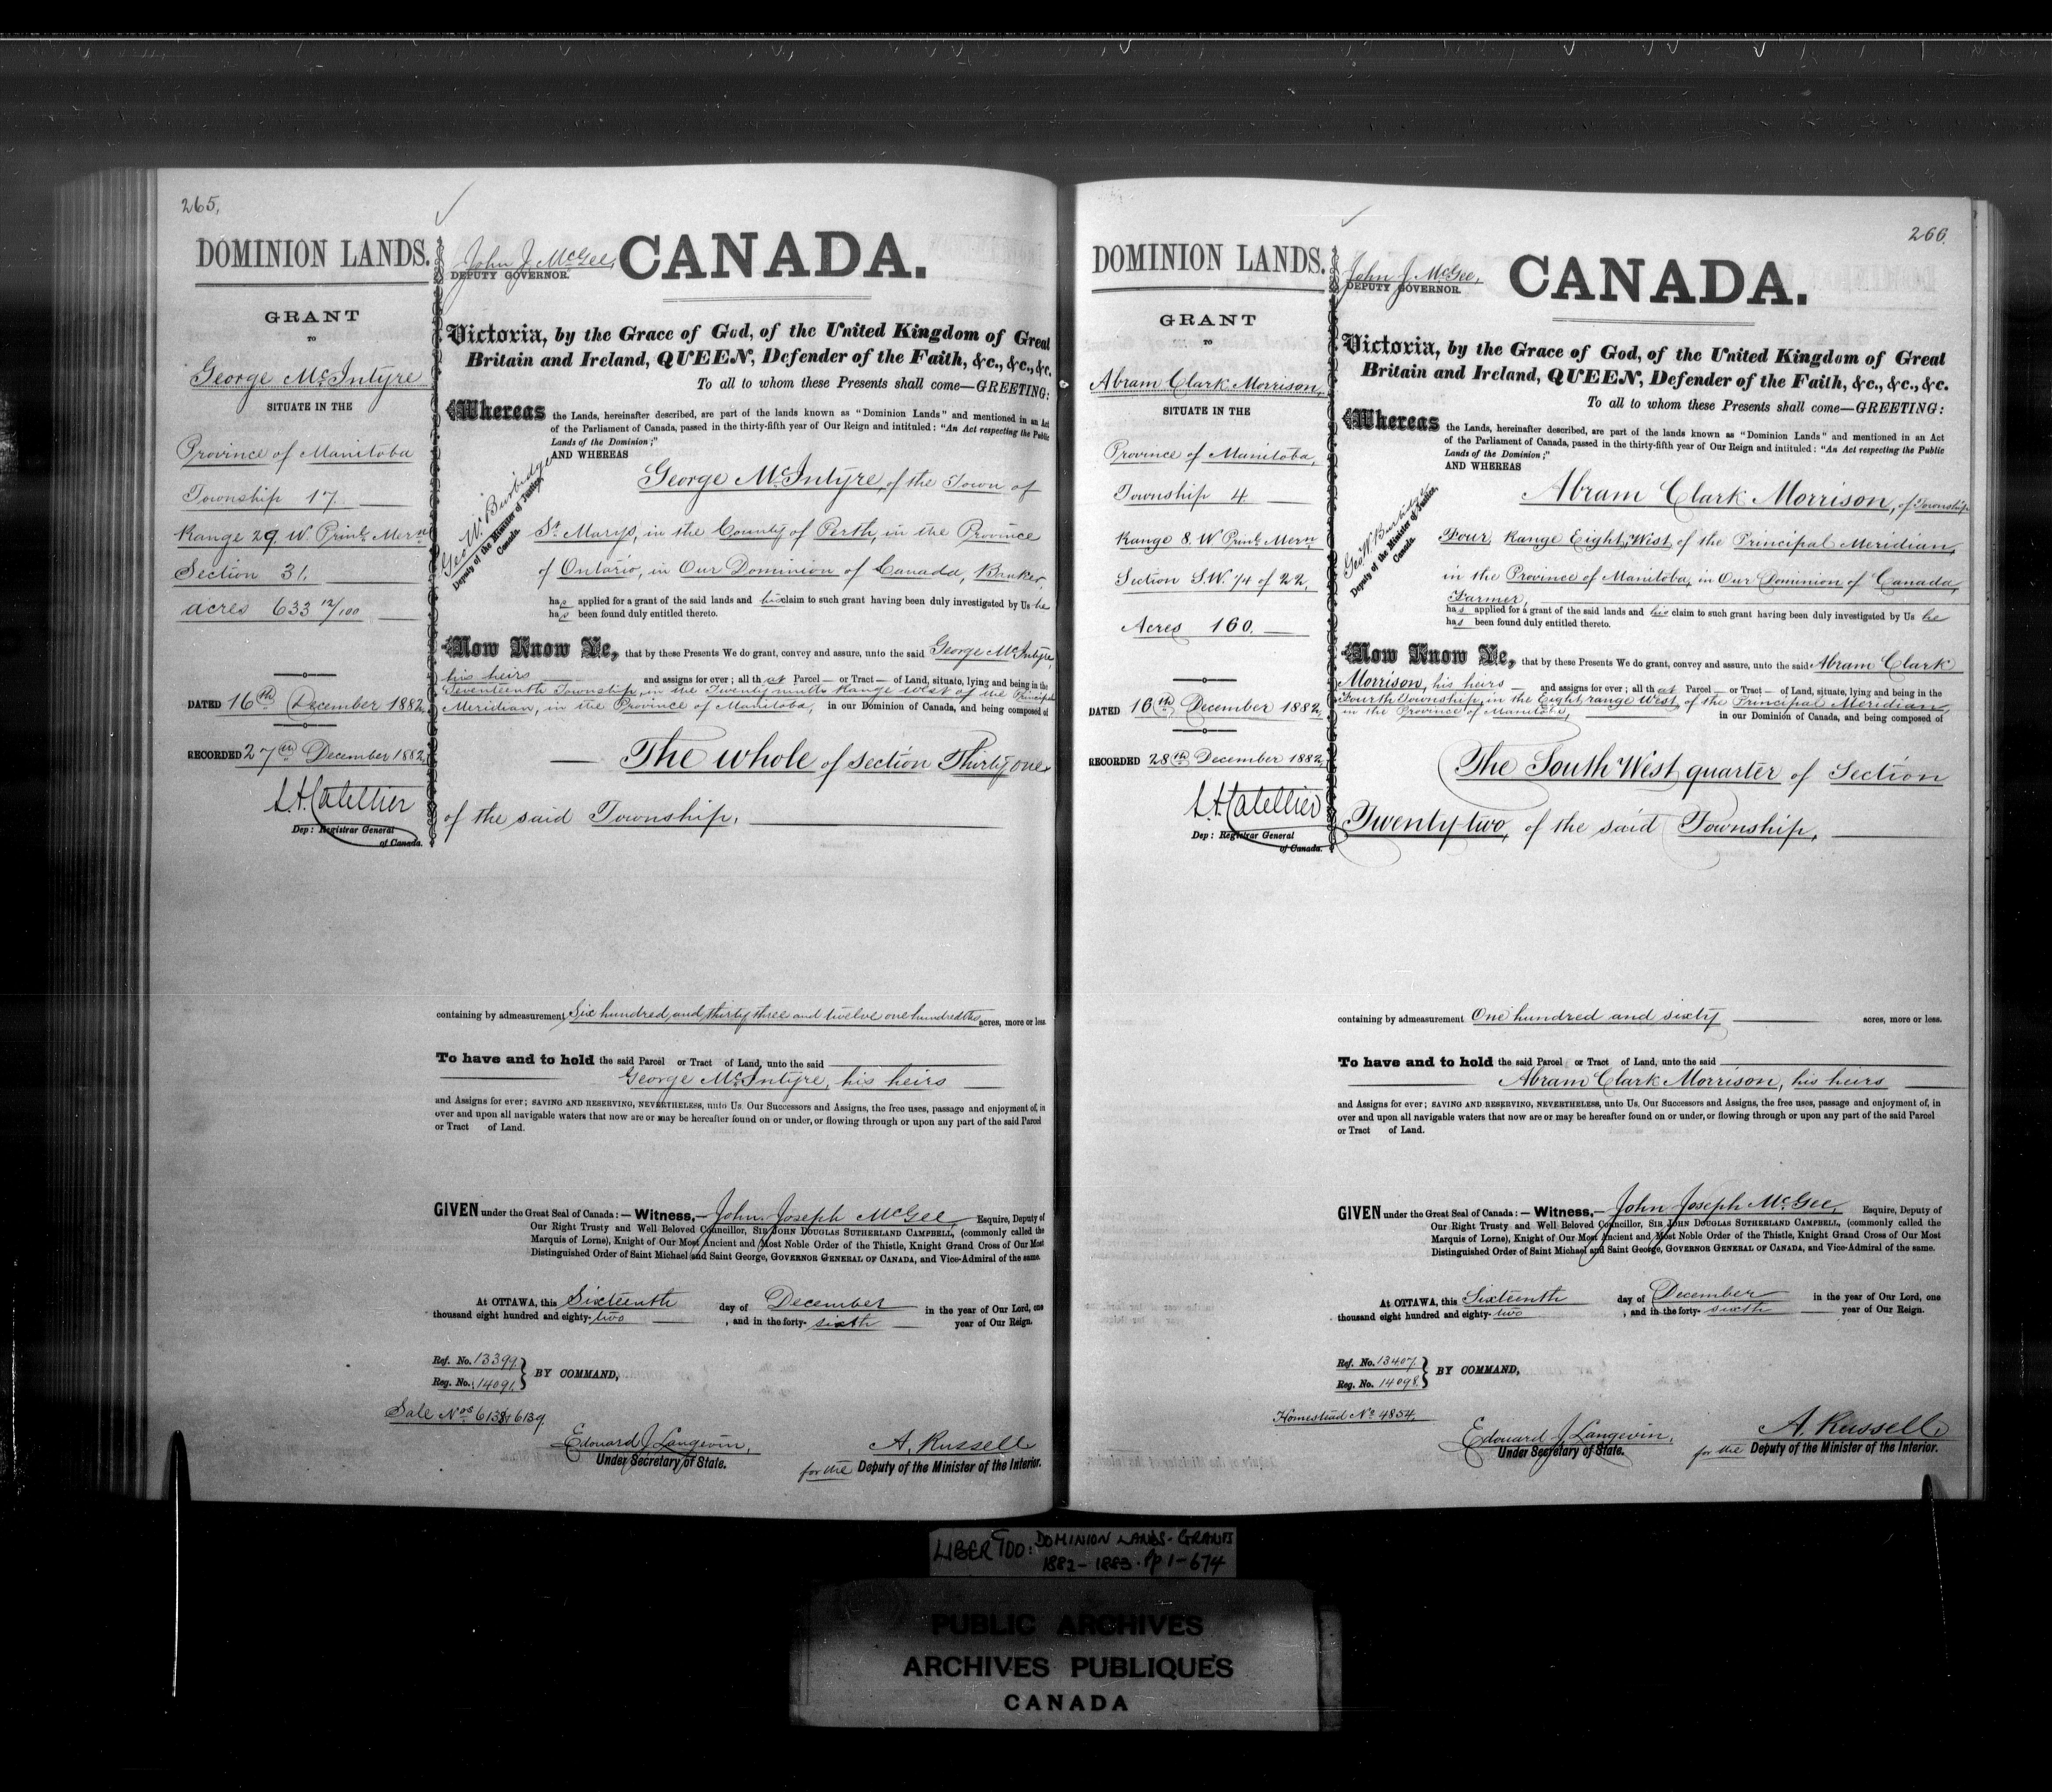 265.
DOMINION LANDS.
GRANT
TO
George McIntyre
SITUATE IN THE
Province of Manitoba
Township 17
Range 29 W. Prinl. Mern
Section 31.
acres 633 12/100
DATED 16th December 1882.
RECORDED 27th December 1882.
L.A. Catellier
Dep: Registrar General
of Canada.
John J. McGee,
DEPUTY GOVERNOR.
CANADA.
Victoria, by the Grace of God, of the United Kingdom of Great
Britain and Ireland, QUEEN, Defender of the Faith, &c., &c., &c.
To all to whom these Presents shall come—GREETING:
Whereas the Lands, hereinafter described, are part of the lands known as "Dominion Lands" and mentioned in an Act
of the Parliament of Canada, passed in the thirty-fifth year of Our Reign and intituled: "An Act respecting the Public
Lands of the Dominion;"
AND WHEREAS
Geo. W. Burbidge
Deputy of the Minister of Justice,
Canada.
George McIntyre, of the Town of
St. Marys, in the County of Perth, in the Province
of Ontario, in Our Dominion of Canada, Banker,
has applied for a grant of the said lands and his claim to such grant having been duly investigated by Us he
has been found duly entitled thereto.
Now Know Ye, that by these Presents We do grant, convey and assure, unto the said George McIntyre,
his heirs and assigns for ever; all that Parcel — or Tract — of Land, situate, lying and being in the
Seventeenth Township, in the Twenty ninth Range west of the Principal
Meridian, in the Province of Manitoba, in our Dominion of Canada, and being composed of
The whole of Section Thirty one
of the said Township.
containing by admeasurement Six hundred and thirty three and twelve one hundredths acres, more or less.
To have and to hold the said Parcel or Tract of Land, unto the said
George McIntyre, his heirs
and Assigns for ever; SAVING AND RESERVING, NEVERTHELESS, unto Us, Our Successors and Assigns, the free uses, passage and enjoyment of, in
over and upon all navigable waters that now are or may be hereafter found on or under, or flowing through or upon any part of the said Parcel
or Tract of Land.
GIVEN under the Great Seal of Canada: — Witness,— John Joseph McGee, Esquire, Deputy of
Our Right Trusty and Well Beloved Councillor, SIR JOHN DOUGLAS SUTHERLAND CAMPBELL, (commonly called the
Marquis of Lorne), Knight of Our Most Ancient and Most Noble Order of the Thistle, Knight Grand Cross of Our Most
Distinguished Order of Saint Michael and Saint George, GOVERNOR GENERAL OF CANADA, and Vice-Admiral of the same.
At OTTAWA, this Sixteenth day of December in the year of Our Lord, one
thousand eight hundred and eighty-two, and in the forty-sixth year of Our Reign.
Ref. No. 13399.
Reg. No. 14091.
BY COMMAND,
Sale Nos 6138 & 6139.
Edouard J. Langevin,
Under Secretary of State.
A. Russell
for the Deputy of the Minister of the Interior.
266.
DOMINION LANDS.
GRANT
TO
Abram Clark Morrison,
SITUATE IN THE
Province of Manitoba,
Township 4
Range 8. W Prinl. Mern
Section S.W. 1/4 of 22,
Acres 160.
DATED 16th December 1882,
RECORDED 28th December 1882,
L.A. Catellier
Dep: Registrar General
of Canada.
John J. McGee,
DEPUTY GOVERNOR.
CANADA.
Victoria, by the Grace of God, of the United Kingdom of Great
Britain and Ireland, QUEEN, Defender of the Faith, &c., &c., &c.
To all to whom these Presents shall come—GREETING:
Whereas the Lands, hereinafter described, are part of the lands known as "Dominion Lands" and mentioned in an Act
of the Parliament of Canada, passed in the thirty-fifth year of Our Reign and intituled: "An Act respecting the Public
Lands of the Dominion;"
AND WHEREAS
Geo. W. Burbidge
Deputy of the Minister of Justice,
Canada.
Abram Clark Morrison, of Township
Four, Range Eight, West of the Principal Meridian,
in the Province of Manitoba, in Our Dominion of Canada,
Farmer,
has applied for a grant of the said lands and his claim to such grant having been duly investigated by Us he
has been found duly entitled thereto.
Now Know Ye, that by these Presents We do grant, convey and assure, unto the said Abram Clark
Morrison, his heirs — and assigns for ever; all that Parcel — or Tract — of Land, situate, lying and being in the
Fourth Township, in the Eight, range West, of the Principal Meridian,
in the Province of Manitoba, in our Dominion of Canada, and being composed of
The South West quarter of Section
Twenty two, of the said Township.
containing by admeasurement One hundred and sixty acres, more or less.
To have and to hold the said Parcel or Tract of Land, unto the said
Abram Clark Morrison, his heirs
and Assigns for ever; SAVING AND RESERVING, NEVERTHELESS, unto Us, Our Successors and Assigns, the free uses, passage and enjoyment of, in
over and upon all navigable waters that now are or may be hereafter found on or under, or flowing through or upon any part of the said Parcel
or Tract of Land.
GIVEN under the Great Seal of Canada: — Witness,— John Joseph McGee, Esquire, Deputy of
Our Right Trusty and Well Beloved Councillor, SIR JOHN DOUGLAS SUTHERLAND CAMPBELL, (commonly called the
Marquis of Lorne), Knight of Our Most Ancient and Most Noble Order of the Thistle, Knight Grand Cross of Our Most
Distinguished Order of Saint Michael and Saint George, GOVERNOR GENERAL OF CANADA, and Vice-Admiral of the same.
At OTTAWA, this Sixteenth day of December in the year of Our Lord, one
thousand eight hundred and eighty-two, and in the forty-sixth year of Our Reign.
Ref. No. 13407.
Reg. No. 14098.
BY COMMAND,
Homestead No 4854.
Edouard J Langevin,
Under Secretary of State.
A. Russell,
for the Deputy of the Minister of the Interior.
LIBER 900: DOMINION LANDS-GRANTS
1882-1883. Pp 1-674
PUBLIC ARCHIVES
ARCHIVES PUBLIQUES
CANADA